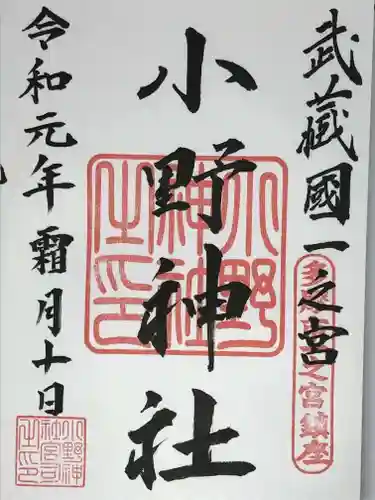 武藏國一之宮
小野神社
令和元年霜月十日
小野神社之印
之宮鎮座
小野神社宮司之印